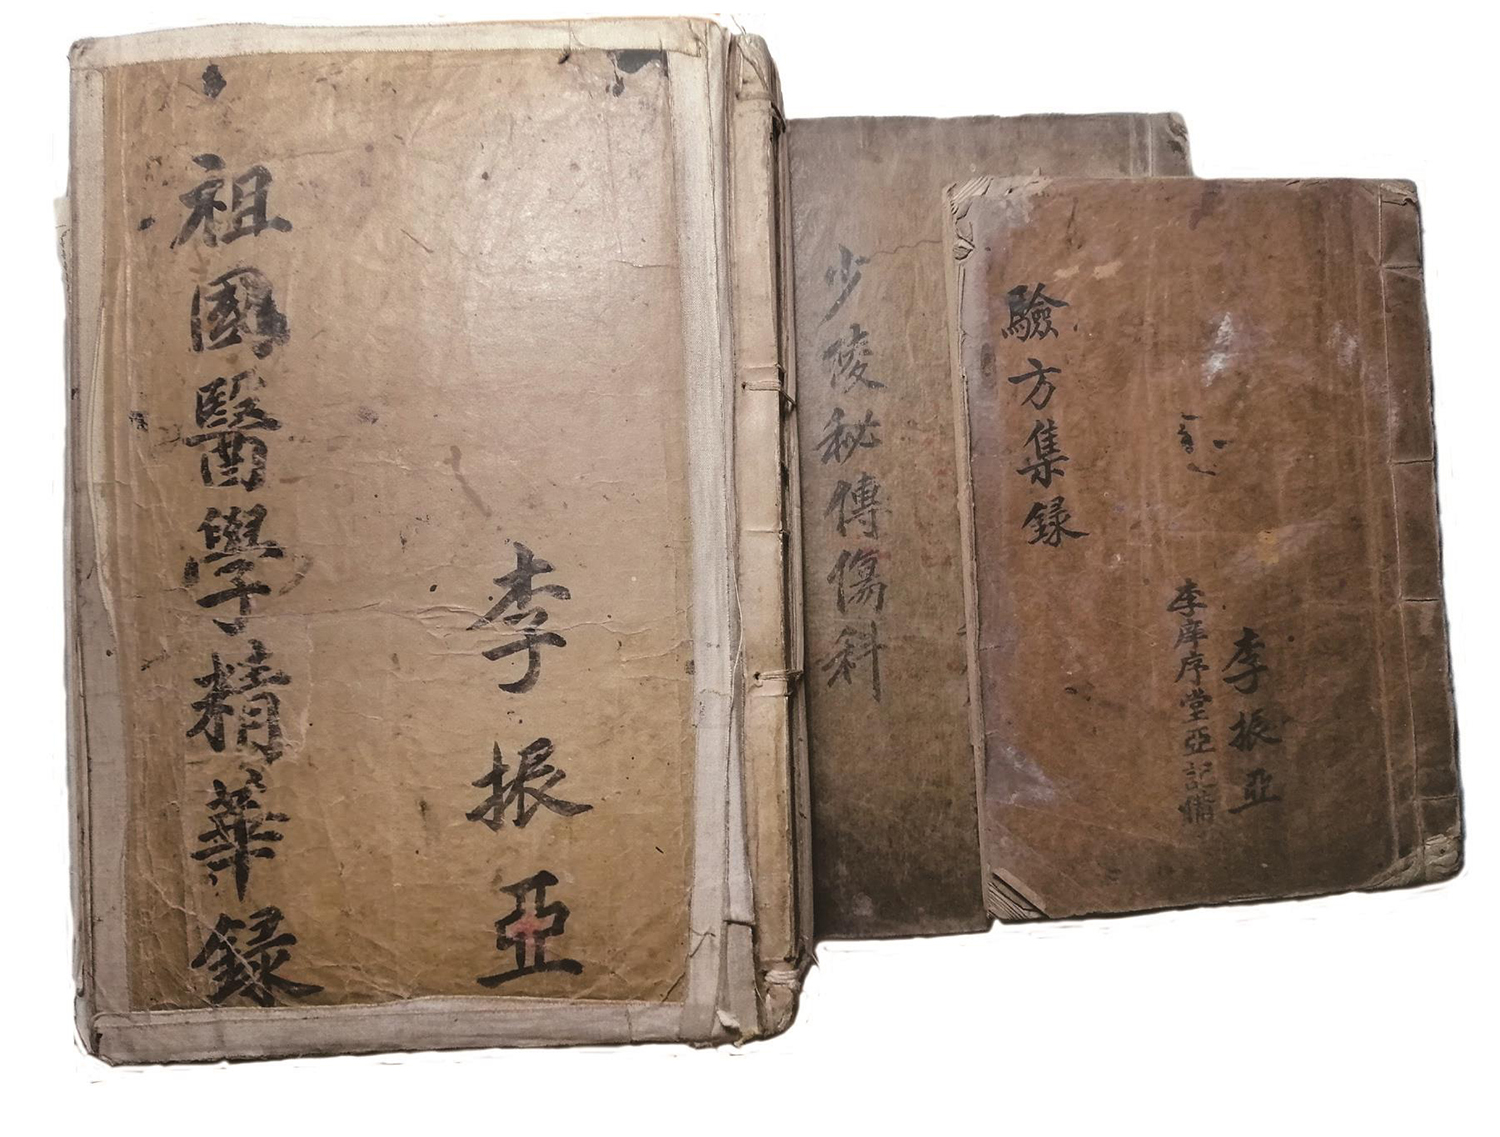 祖國醫學精華錄
李振亞
少陵秘傳傷科
驗方集錄
李庠序堂亞記備
李振亞